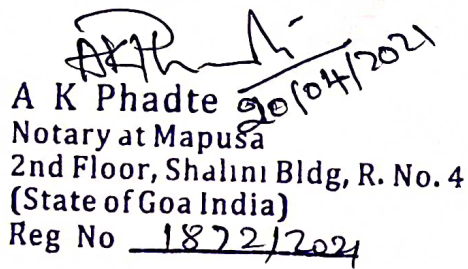 A K Phadte 20/04/2021
Notary at Mapusa
2nd Floor, Shalini Bldg, R. No. 4
(State of Goa India)
Reg No 1872/2021